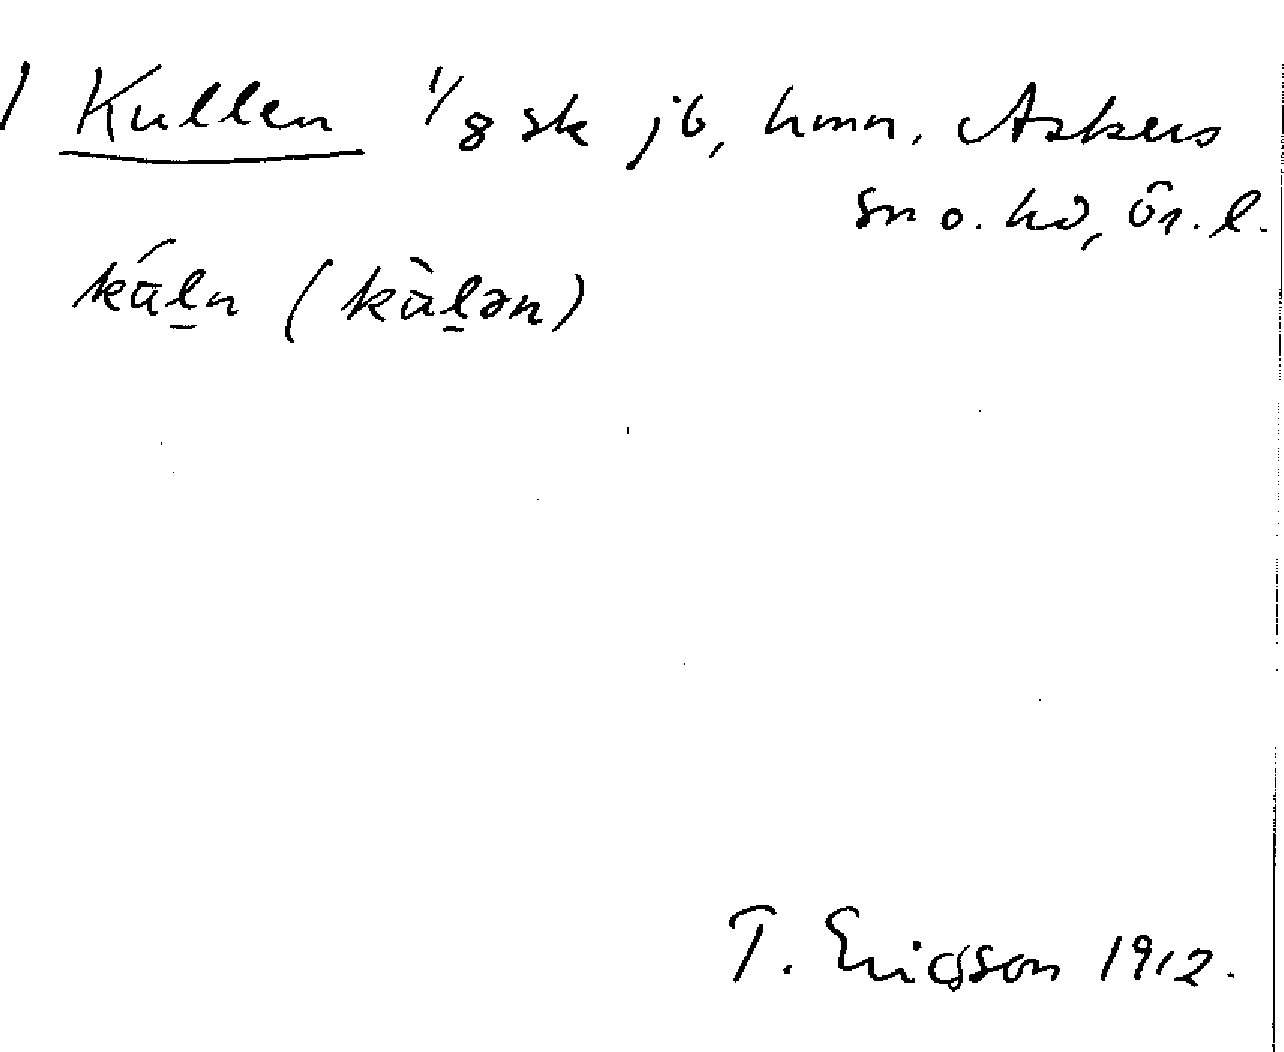 1 Kullen 1/8 sk jb, hmn. Askers
sn o. hd, Ör. l.
kúl̲n (kùl̲ən)
T. Ericsson 1912.